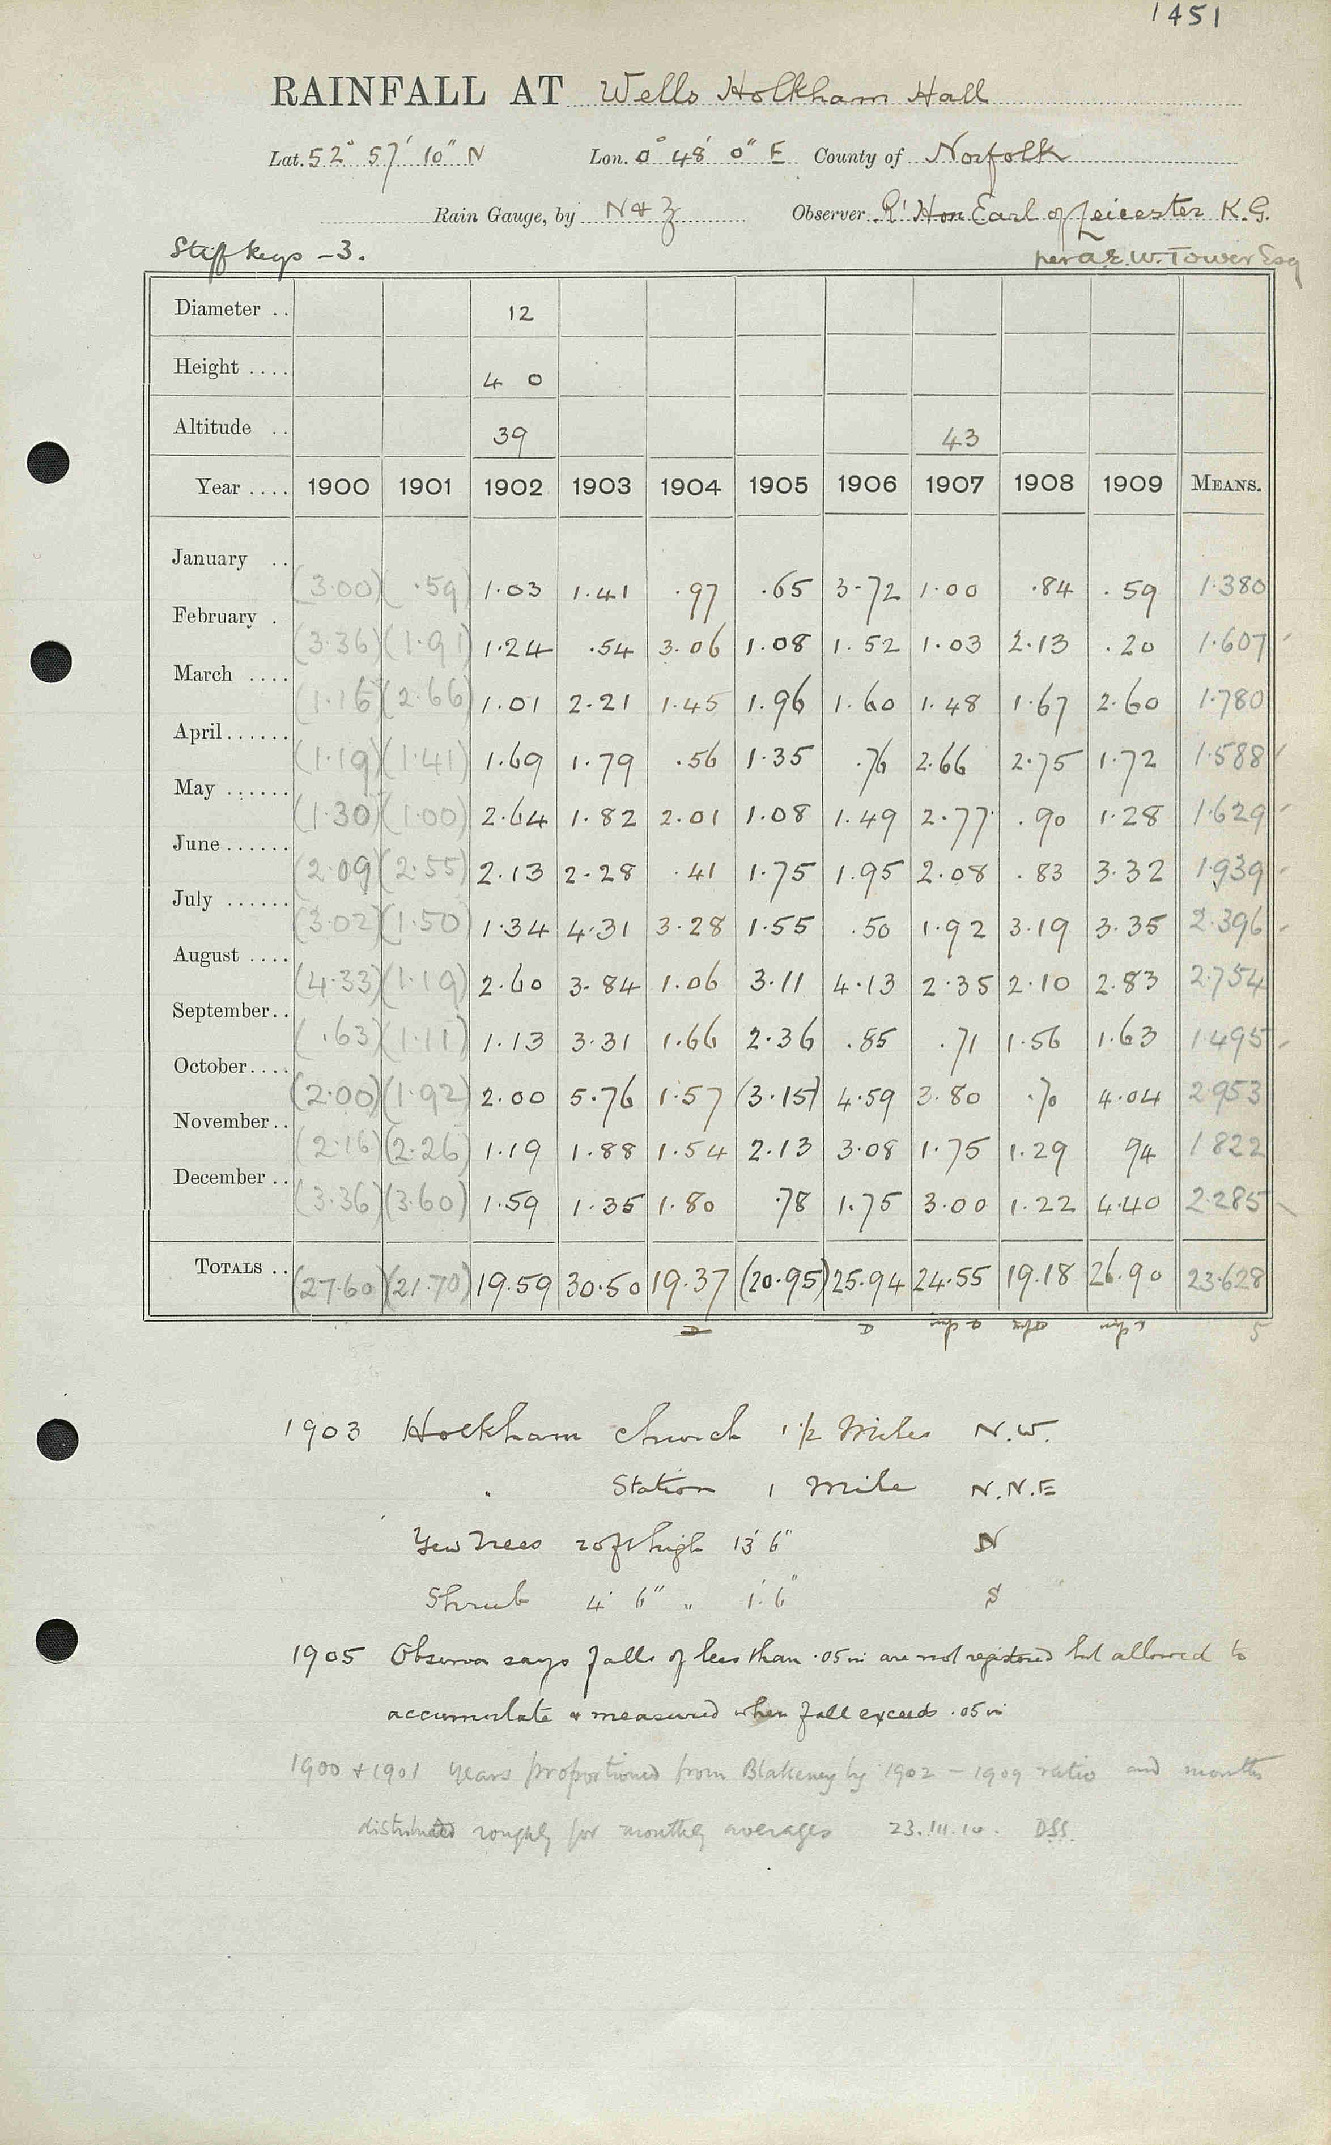 1451
RAINFALL AT Wells Holkham Hall
Lat. 52° 57' 10" N Lon. 0° 48' 0" E County of Norfolk
Rain Gauge, by N & Z Observer Rt Hon Earl of Leicester K.G.
Stiffkeys - 3. per A.E.W. Tower Esq
Diameter .. 12
Height .... 4 0
Altitude .. 39 43
Year .... 1900 1901 1902 1903 1904 1905 1906 1907 1908 1909 MEANS.
January .. (3.00) (.59) 1.03 1.41 .97 .65 3.72 1.00 .84 .59 1.380
February . (3.36) (1.91) 1.24 .54 3.06 1.08 1.52 1.03 2.13 .20 1.607
March .... (1.16) (2.66) 1.01 2.21 1.45 1.96 1.60 1.48 1.67 2.60 1.780
April...... (1.19) (1.41) 1.69 1.79 .56 1.35 .76 2.66 2.75 1.72 1.588
May ...... (1.30) (1.00) 2.64 1.82 2.01 1.08 1.49 2.77 .90 1.28 1.629
June...... (2.09) (2.55) 2.13 2.28 .41 1.75 1.95 2.08 .83 3.32 1.939
July ...... (3.02) (1.50) 1.34 4.31 3.28 1.55 .50 1.92 3.19 3.35 2.396
August .... (4.33) (1.19) 2.60 3.84 1.06 3.11 4.13 2.35 2.10 2.83 2.754
September.. (.63) (1.11) 1.13 3.31 1.66 2.36 .85 .71 1.56 1.63 1.495
October.... (2.00) (1.92) 2.00 5.76 1.57 (3.15) 4.59 3.80 .70 4.04 2.953
November.. (2.16) (2.26) 1.19 1.88 1.54 2.13 3.08 1.75 1.29 94 1.822
December .. (3.36) (3.60) 1.59 1.35 1.80 .78 1.75 3.00 1.22 4.40 2.285
TOTALS .. (27.60) (21.70) 19.59 30.50 19.37 (20.95) 25.94 24.55 19.18 26.90 23.628
5
1903 Holkham Church 1 1/2 Miles N.W.
" Station 1 Mile N.N.E
Yew Trees 20ft high 13' 6" N
Shrub 4' 6" " 1' 6" S
1905 Observer says falls of less than .05 in are not registered but allowed to
accumulate & measured when fall exceeds .05 in
1900 + 1901 years proportioned from Blakeney by 1902 - 1909 ratio and months
distributed roughly for monthly averages 23.III.10. DSS.